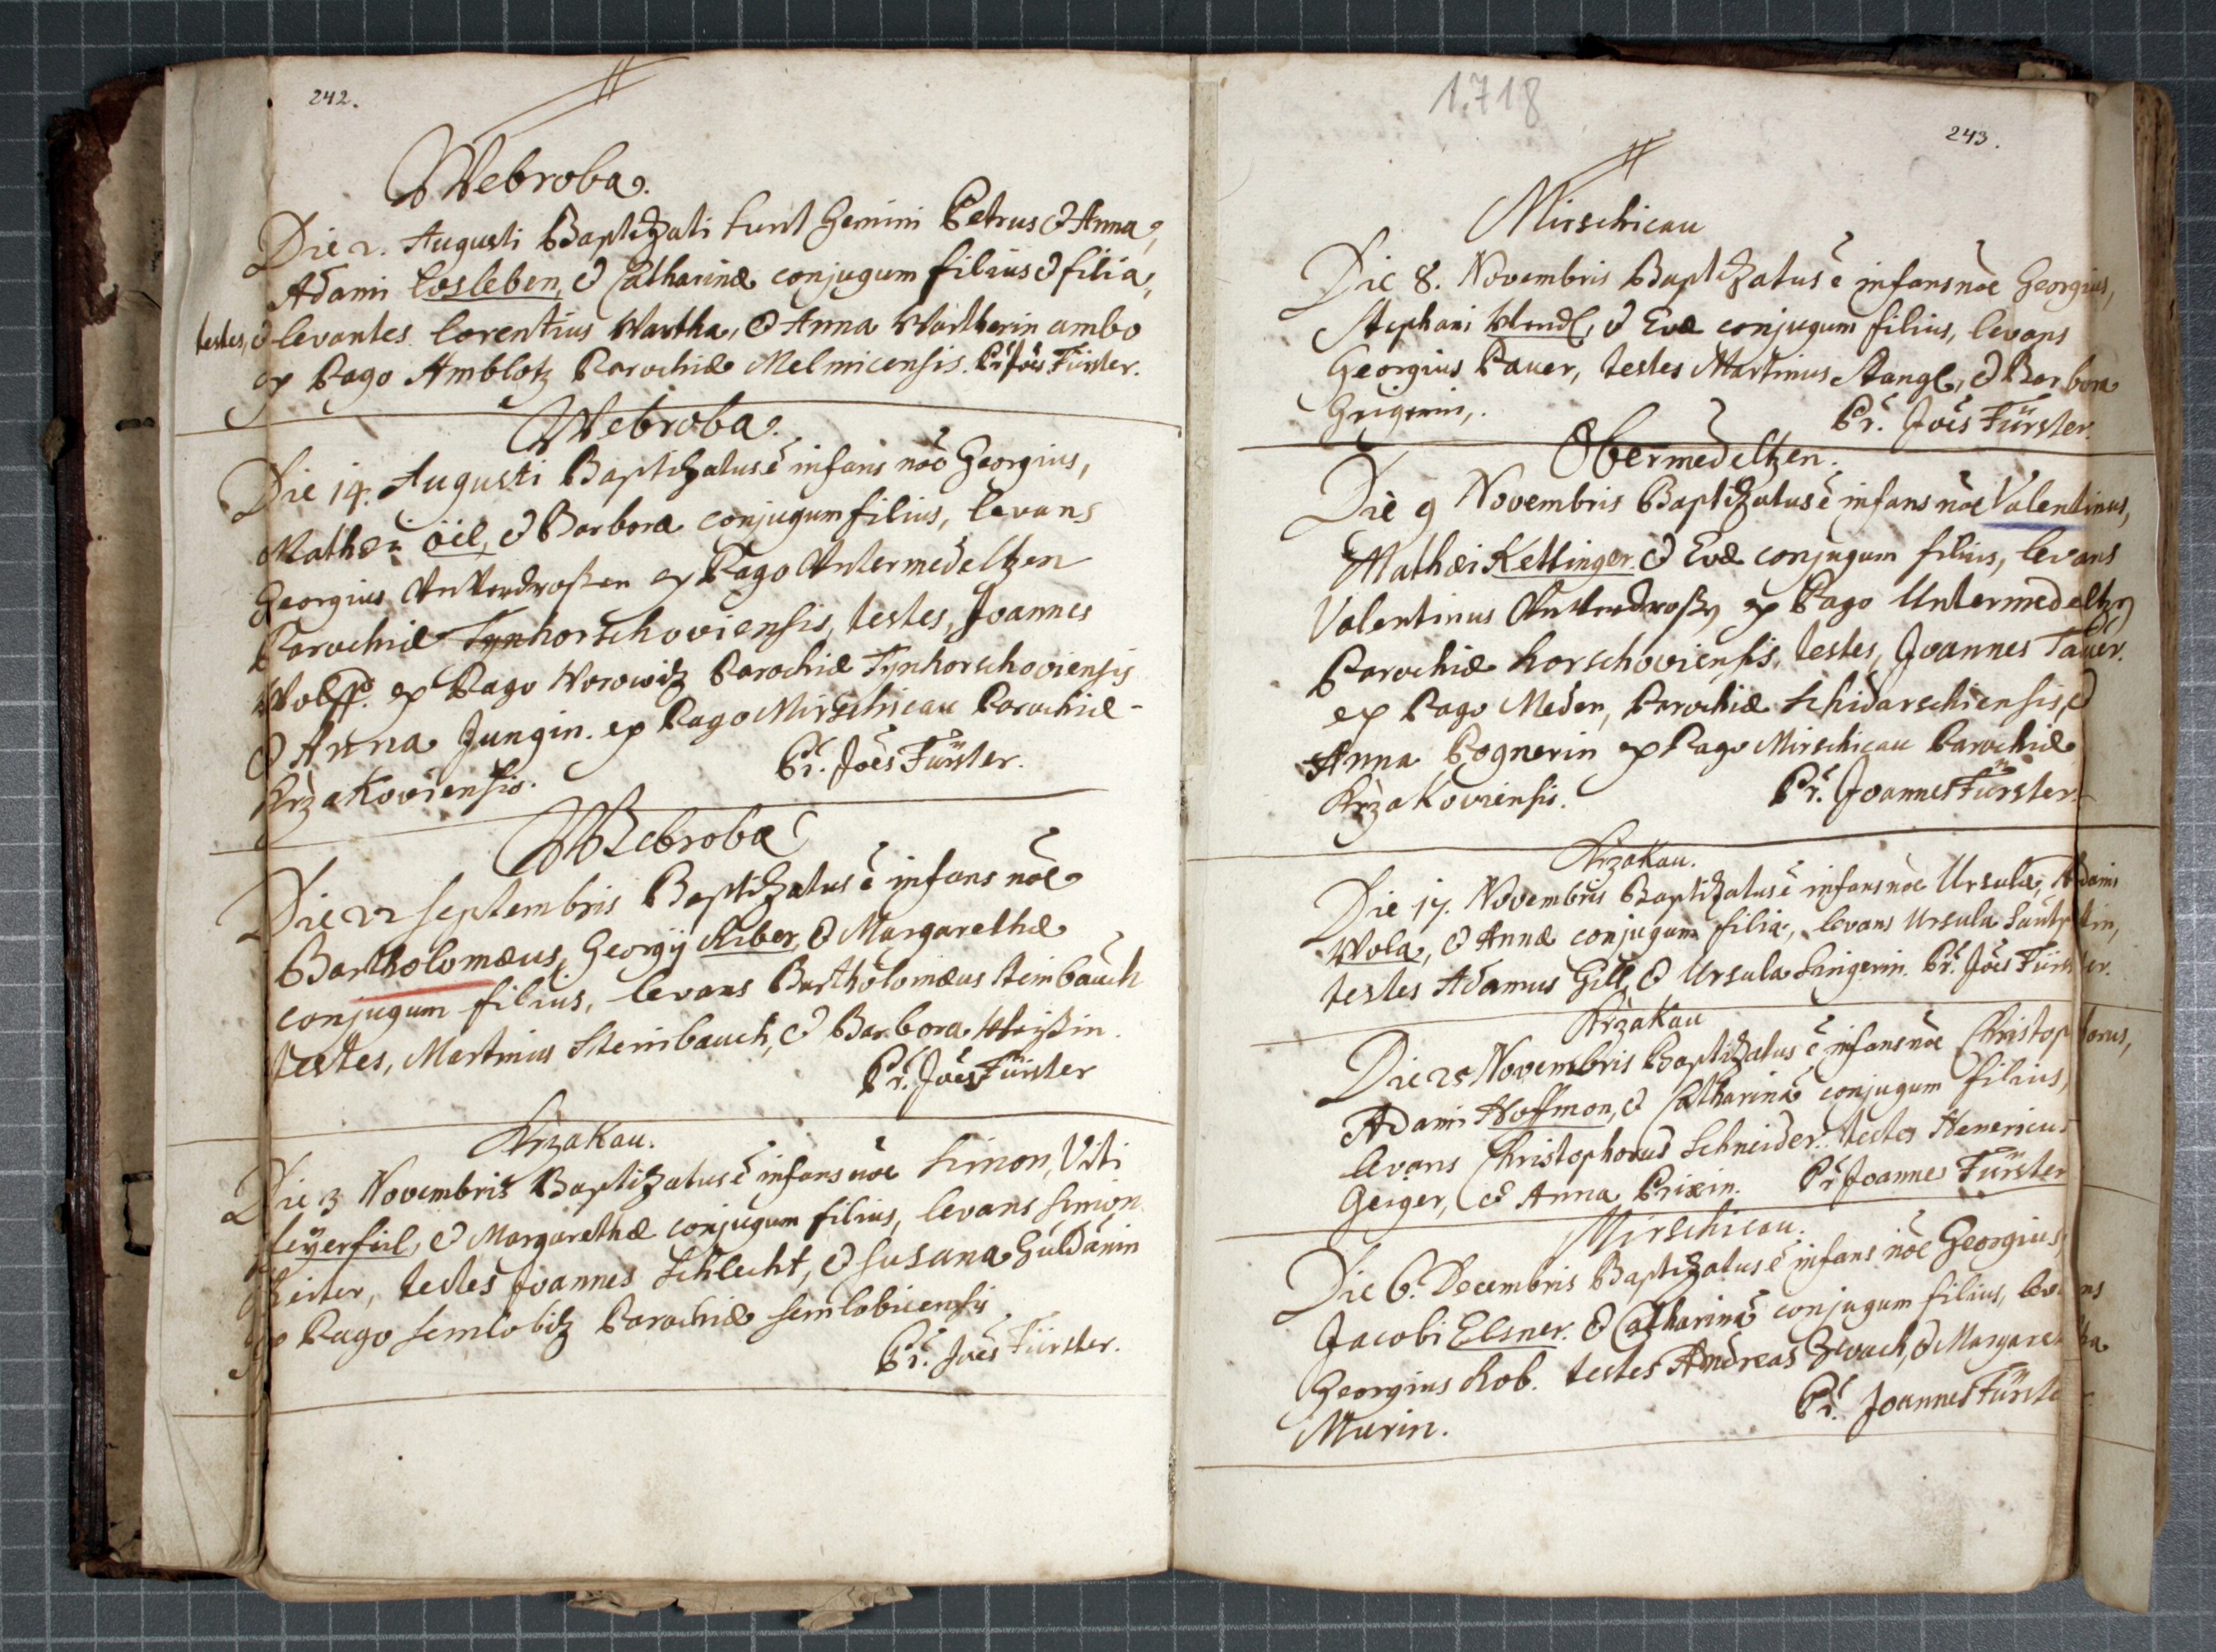 242.
Webroba.
Die 2. Augusti Baptizati sunt Gemini Petrus & Anna,
Adami Losleben, & Catharinæ conjugum filius & filia,
testes, & levantes Lorentius Wartha, & Anna Wartherin ambo
ex Pago Amblotz Parochiæ Melmicensis. Pr. Joēs Fürster.
Webroba.
Die 14. Augusti Baptizatus ē infans nōe Georgius,
Mathæi öil, & Barboræ conjugum filius, levans
Georgius ex Pago Untermedeltzen
Parochiæ Tynhorschoviensis, testes, Joannes
Wolff. ex Pago Worowitz Parochiæ Tynhorschoviensis
& Anna Jungin. ex Pago Mirschicau Parochiæ -
Krzakoviensis. Pr. Joēs Fürster.
Webroba
Die 22 Septembris Baptizatus ē infans nōe
Bartholomæus, Georgÿ Riber, & Margarethæ
conjugum filius, levans Bartholomæus Steinbauch
testes, Martinus Steinbauch, & Barbora Weißin.
Pr. Joēs Fürster
Krzakau.
Die 3 Novembris Baptizatus ē infans nōe Simon, Viti
feÿerfeil, & Margarethæ conjugum filius, levans Simon
Reiter, testes Joannes Schlecht, & Susana Guldanin
ex Pago Semlobitz Parochiæ Semlobicensis
Pr. Joēs Fürster.
1718
243.
Mirschicau
Die 8. Novembris Baptizatus ē infans nōe Georgius,
Stephani Wendl, & Evæ conjugum filius, levans
Georgius Pauer, testes Martinus Stangl, & Barbora
Grigerin,. Pr. Joēs Fürster.
Obermedeltzen.
Die 9 Novembris Baptizatus ē infans nōe Valentinus,
Mathæi Kettinger. & Evæ conjugum filius, levans
Valentinus ex Pago Untermedeltzen
Parochiæ horschoviensis, testes, Joannes Tauer.
ex Pago Meden, Parochiæ Schidarschiensis, &
Anna Pognerin ex Pago Mirschicau Parochiæ
Krzakoviensis. Pr. Joannes Fürster.
Krzakau.
Die 17. Novembris Baptizatus ē infans nōe Ursula, Adami
Wola, & Annæ conjugum filia, levans Ursula
testes Adamus Gill, & Ursula Singerin. Pr. Joēs Fürster.
Krzakau
Die 25 Novembris Baptizatus ē infans nōe Christophorus,
Adami Hoffmon, & Catharinæ conjugum filius,
levans Christophorus Schneider. testes Henericus
Geiger, & Anna Prixin. Pr Joannes Fürster
Mirschicau.
Die 6. Decembris Baptizatus ē infans nōe Georgius,
Jacobi Elsner. & Catharinæ conjugum filius, levans
Georgius Rob. testes Andreas Zwach, & Margaretha
Murin. Pr. Joannes Fürste